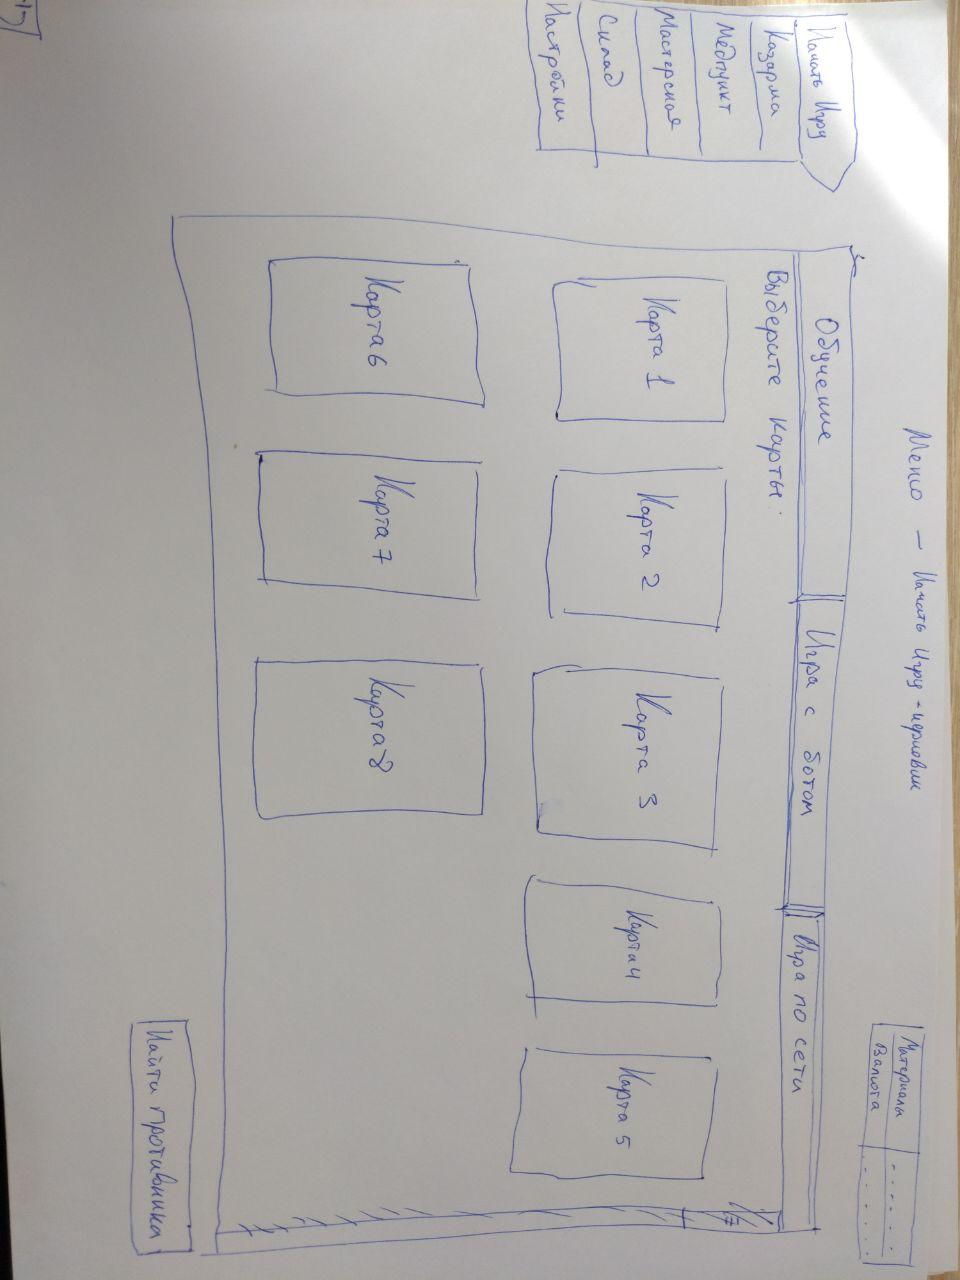 Меню – Начать Игру - черновик
Материалы - - - - -
Валюта - - - - -
Начать Игру
Казарма
Медпункт
Мастерская
Склад
Настройки
Обучение
Игра с ботом
Игра по сети
Выберите карты:
Карта 1
Карта 2
Карта 3
Карта 4
Карта 5
Карта 6
Карта 7
Карта 8
Найти противника